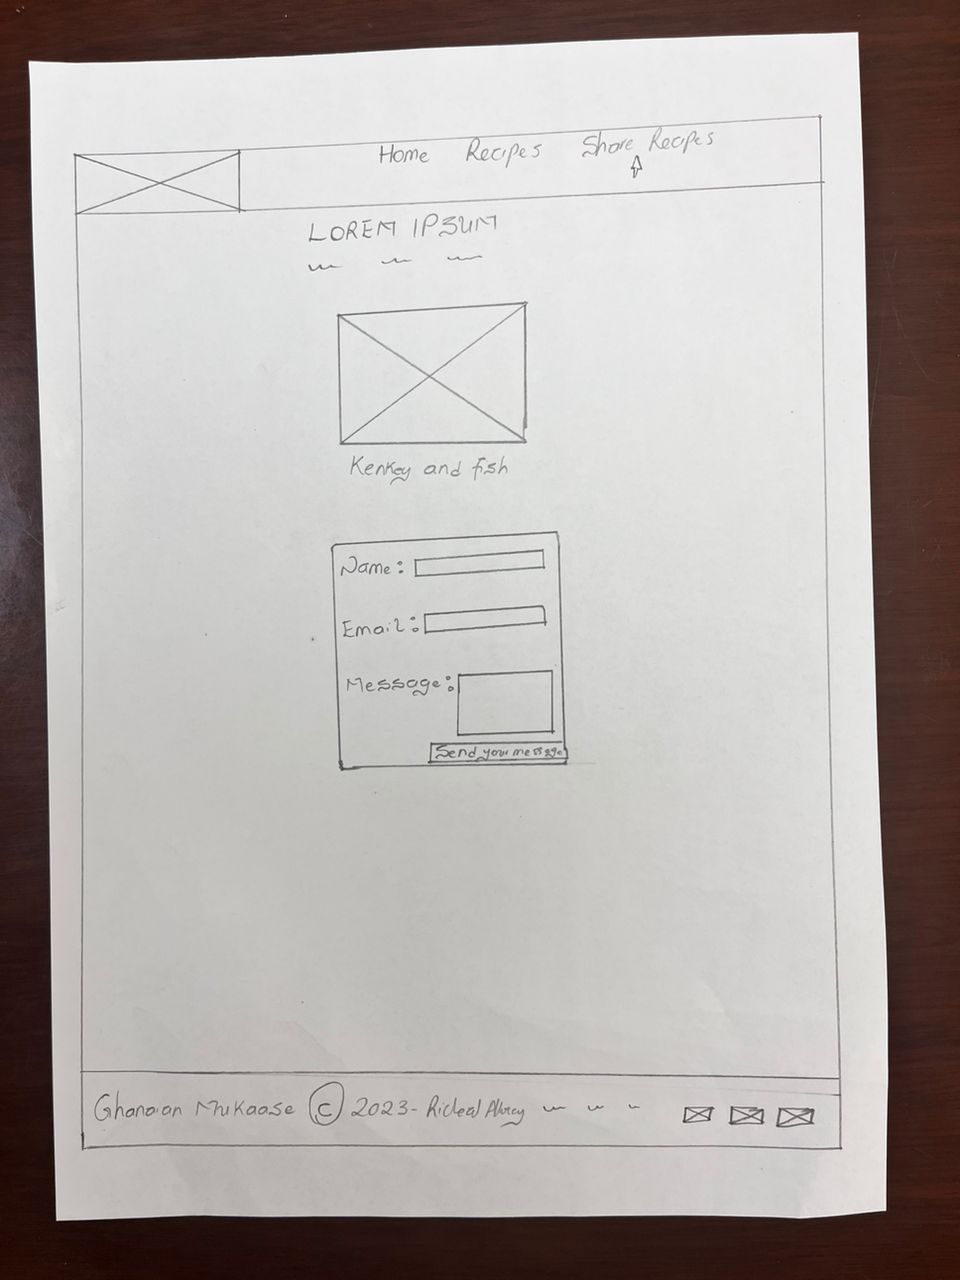 Home Recipes Share Recipes
LOREM IPSUM
Kenkey and fish
Name:
Email:
Message:
Send your message
Ghanaian Mukaase © 2023-